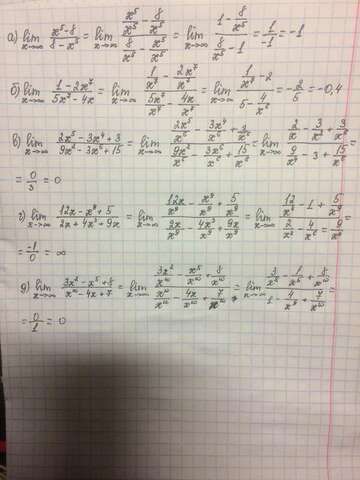 а) lim x→∞ (x⁵-8)/(8-x⁵) = lim x→∞ (x⁵/x⁵ - 8/x⁵)/(8/x⁵ - x⁵/x⁵) = lim x→∞ (1 - 8/x⁵)/(8/x⁵ - 1) = 1/-1 = -1
б) lim x→∞ (1-2x⁷)/(5x⁷-4x) = lim x→∞ (1/x⁷ - 2x⁷/x⁷)/(5x⁷/x⁷ - 4x/x⁷) = lim x→∞ (1/x⁷ - 2)/(5 - 4/x⁶) = -2/5 = -0,4
в) lim x→∞ (2x⁵-3x⁴+3)/(9x²-3x⁶+15) = lim x→∞ (2x⁵/x⁶ - 3x⁴/x⁶ + 3/x⁶)/(9x²/x⁶ - 3x⁶/x⁶ + 15/x⁶) = lim x→∞ (2/x - 3/x² + 3/x⁶)/(9/x⁴ - 3 + 15/x⁶) =
= 0/3 = 0
г) lim x→∞ (12x-x⁹+5)/(2x+4x³+9x) = lim x→∞ (12x/x⁹ - x⁹/x⁹ + 5/x⁹)/(2x/x⁹ + 4x³/x⁹ + 9x/x⁹) = lim x→∞ (12/x⁸ - 1 + 5/x⁹)/(2/x⁸ - 4/x⁶ = 9/x⁸) =
= -1/0 = ∞
д) lim x→∞ (3x²-x⁵+8)/(x¹⁰-4x+7) = lim x→∞ (3x²/x¹⁰ - x⁵/x¹⁰ + 8/x¹⁰)/(x¹⁰/x¹⁰ - 4x/x¹⁰ + 7/x¹⁰) = lim x→∞ (3/x⁸ - 1/x⁵ + 8/x¹⁰)/(1 - 4/x⁹ + 7/x¹⁰) =
= 0/1 = 0